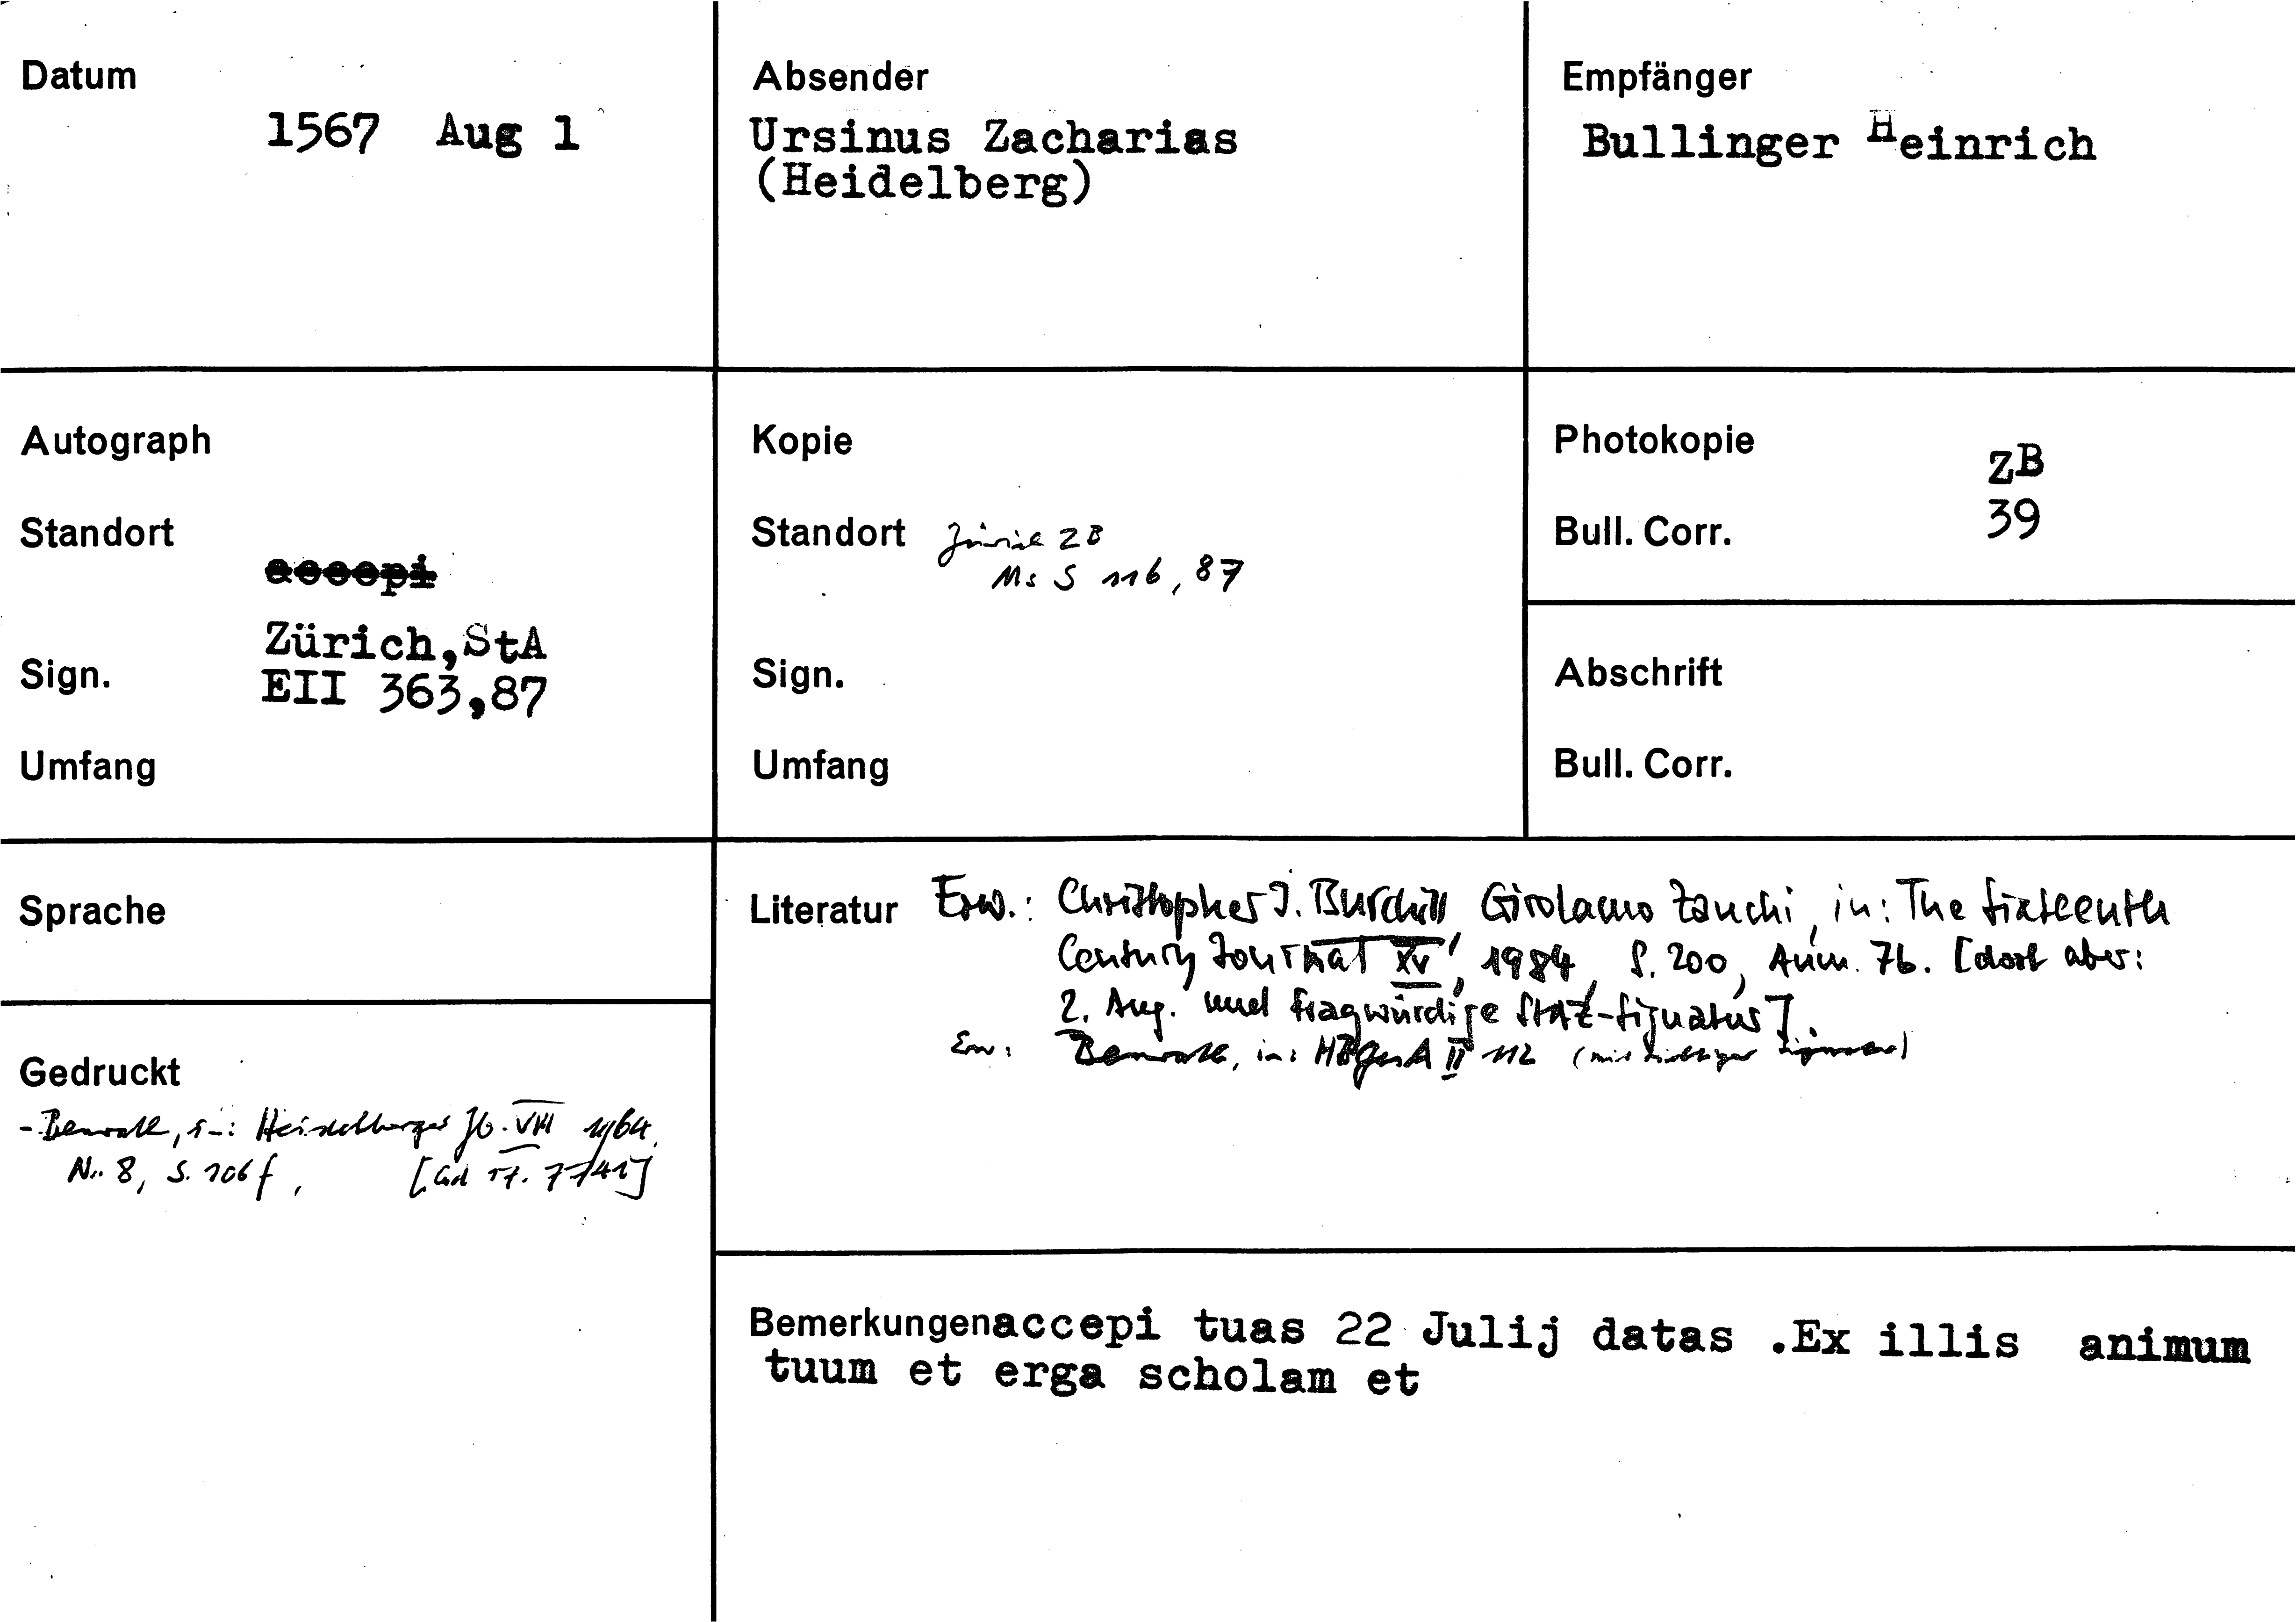 Datum
1567 Aug 1
Absender
Ursinus Zacharias
(Heidelberg)
Empfänger
Bullinger Heinrich
Autograph
Standort
accepi
Zürich,StA
Sign.
EII 363,87
Umfang
Kopie
Standort Zürich ZB
Ms S 116, 87
Sign.
Umfang
Photokopie
ZB
Bull. Corr.
39
Abschrift
Bull. Corr.
Sprache
Gedruckt
- Benrath, in: Heidelberger Jb. VIII 1964,
Nr. 8, S. 106 f,
Literatur Erw.: Christopher J. Burchill, Girolamo Zanchi, in: The Sixteenth
Century Journal XV, 1984, S. 200, Anm. 76. [dort aber:
2. Aug. und fragwürdige StAZ-Signatur].
Erw: Benrath, in: HBGesA II 112 (mit richtiger Signatur)
Bemerkungen accepi tuas 22 Julij datas .Ex illis animum
tuum et erga scholam et